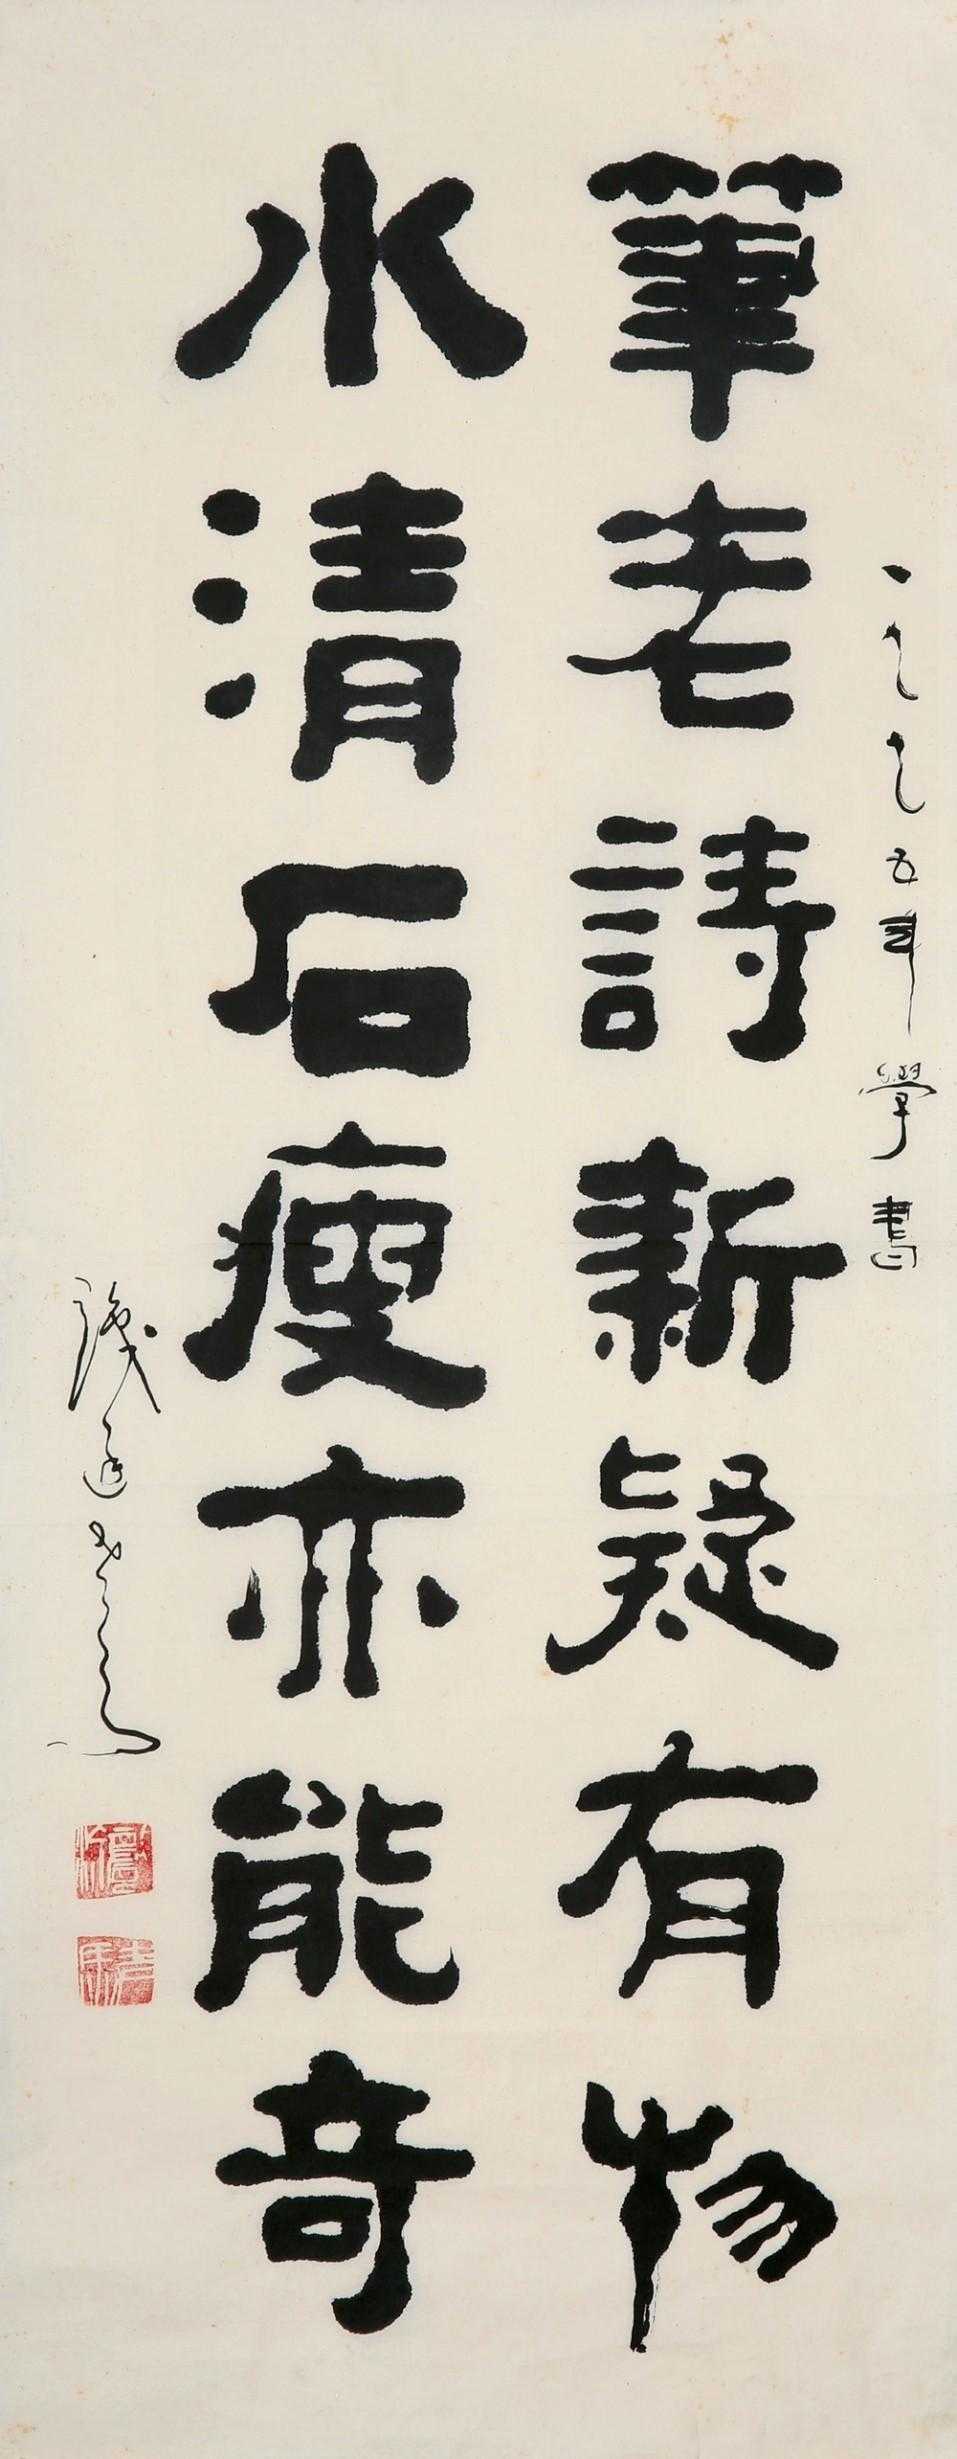 一九九五年學書
筆老詩新疑有物
水清石瘦亦能奇